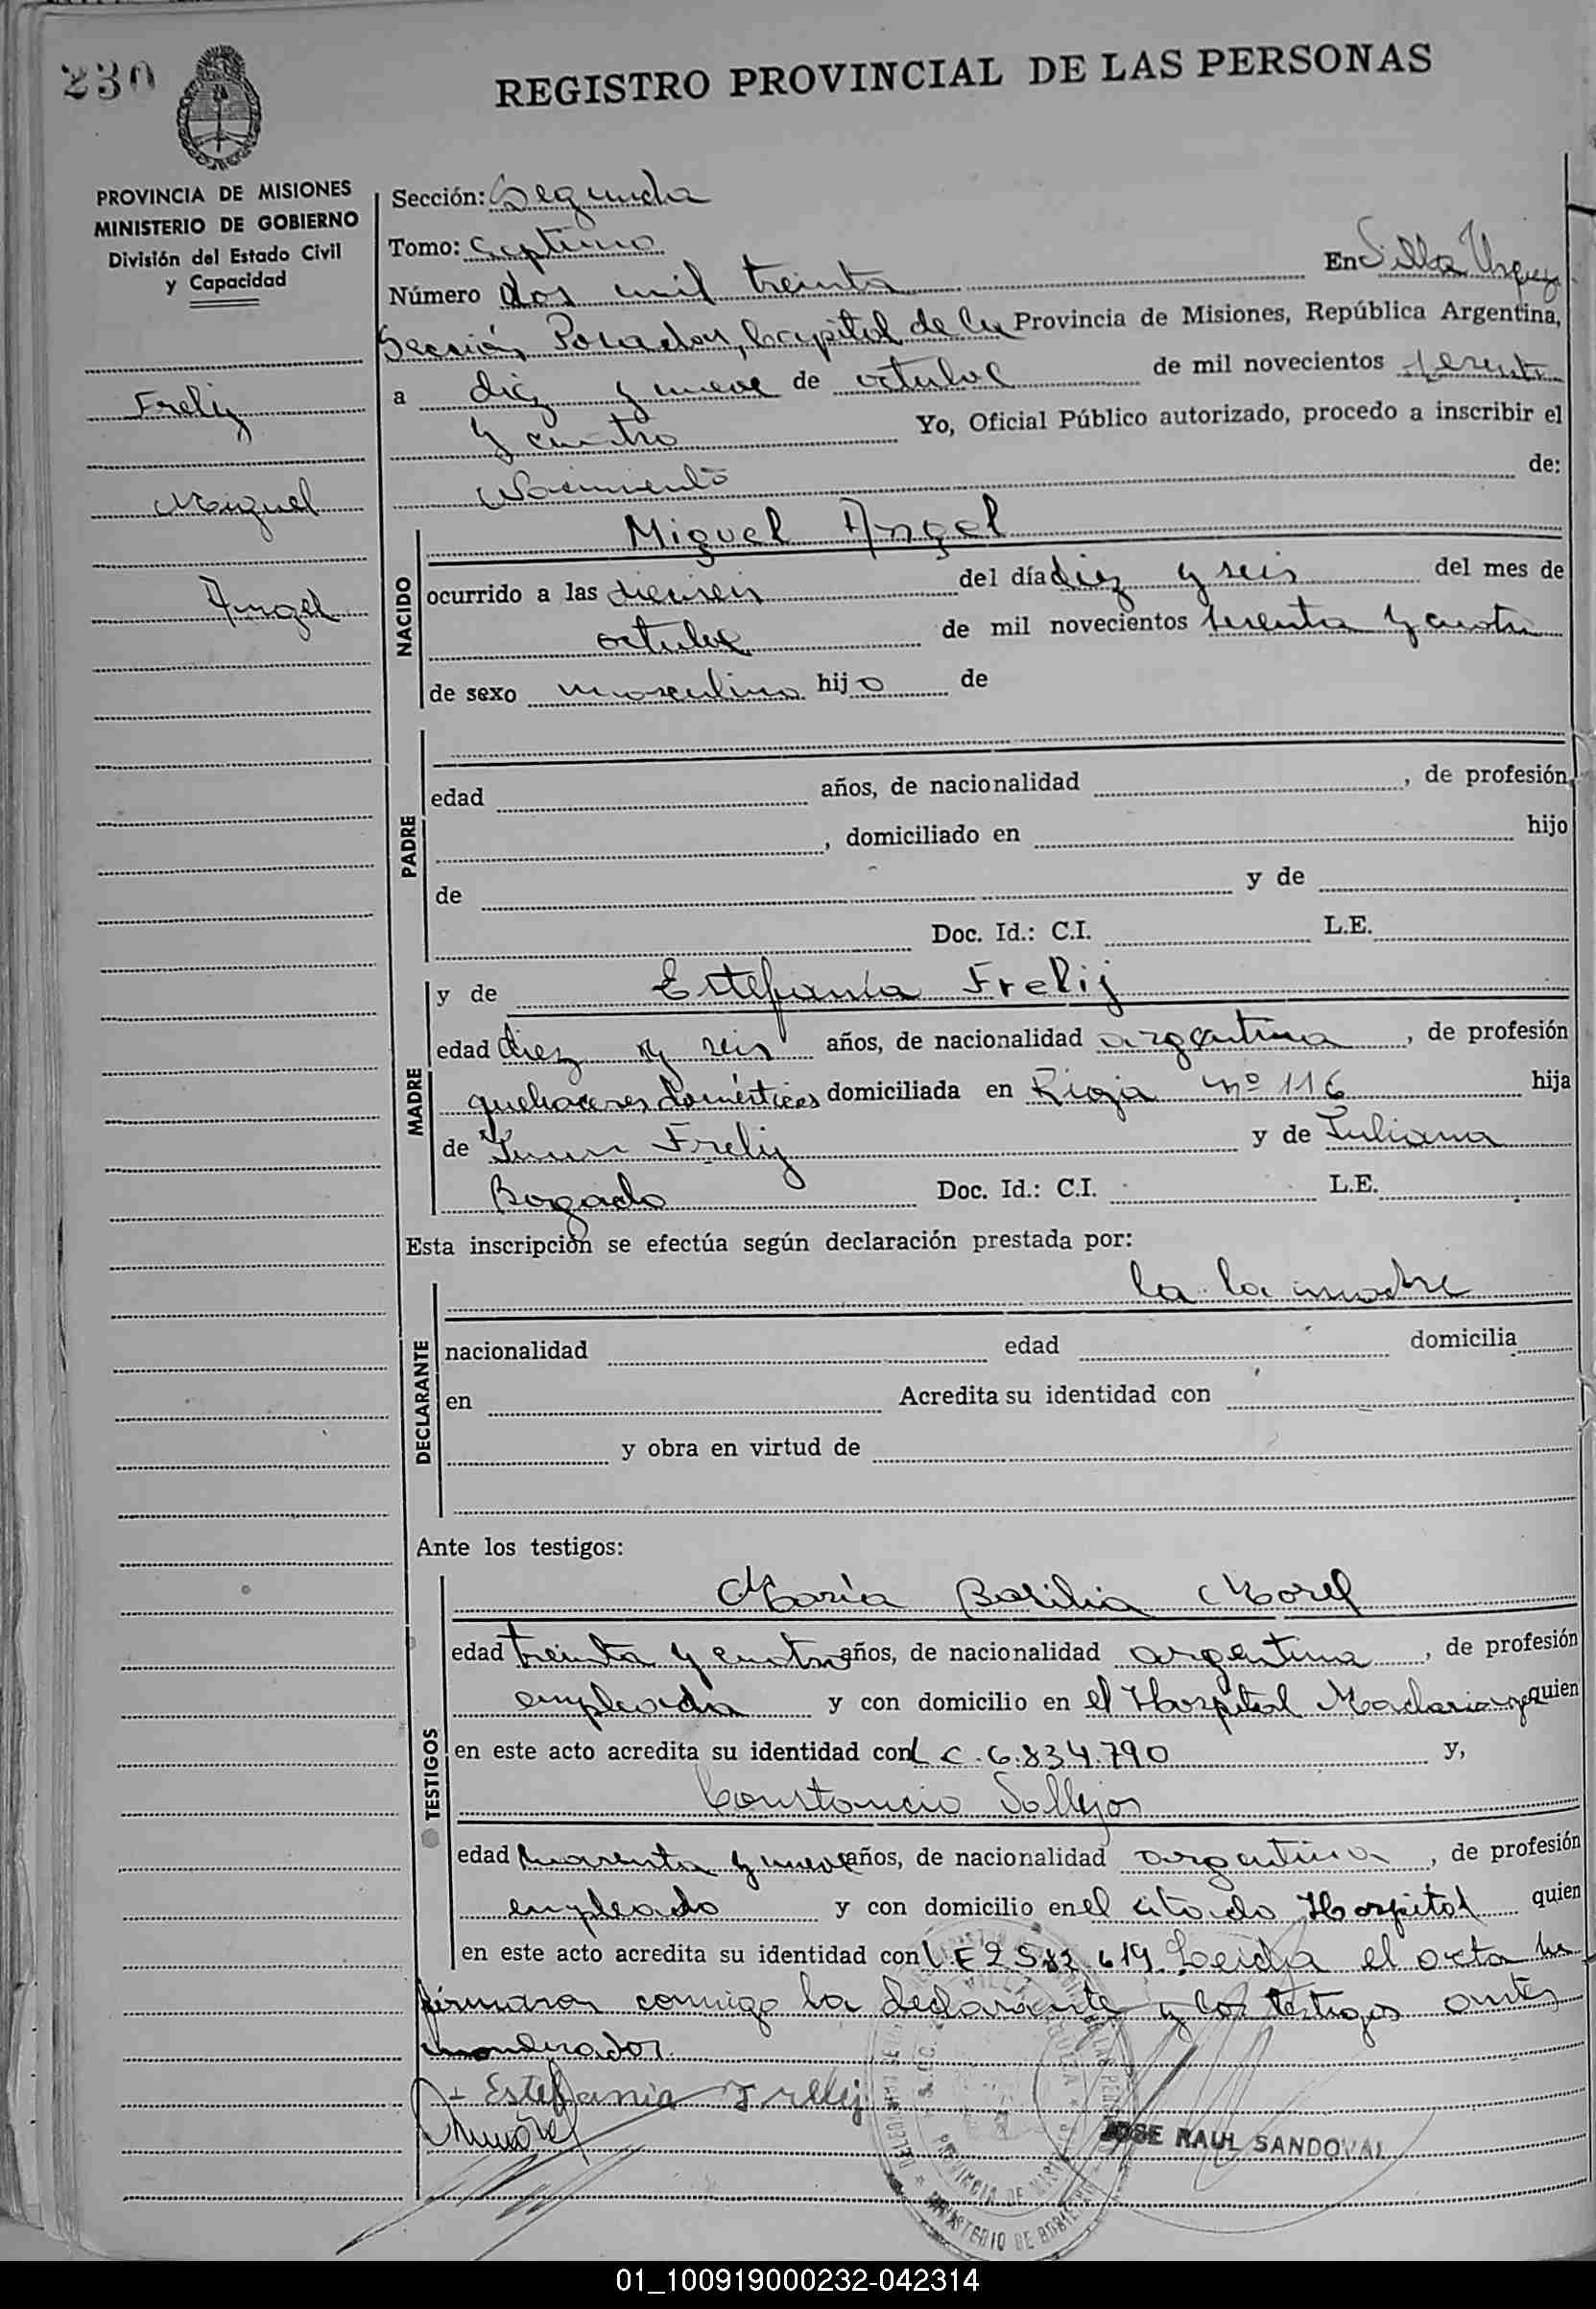 230
REGISTRO PROVINCIAL DE LAS PERSONAS
PROVINCIA DE MISIONES
MINISTERIO DE GOBIERNO
División del Estado Civil
y Capacidad
Frelij
Miguel
Angel
Sección: Segunda
Tomo: Septimo
Número dos mil treinta En Villa Urquiza
Sección Posadas, Capital de la Provincia de Misiones, República Argentina,
a diez y nueve de octubre de mil novecientos sesenta
y cuatro Yo, Oficial Público autorizado, procedo a inscribir el
Nacimiento de:
NACIDO
Miguel Angel
ocurrido a las dieciseis del día diez y seis del mes de
octubre de mil novecientos sesenta y cuatro
de sexo masculino hijo de
PADRE
edad años, de nacionalidad , de profesión
, domiciliado en hijo
de y de
Doc. Id.: C.I. L.E.
MADRE
y de Estefanía Frelij
edad diez y seis años, de nacionalidad argentina , de profesión
quehaceres domésticos domiciliada en Rioja nº 116 hija
de Juan Frelij y de Juliana
Bogado Doc. Id.: C.I. L.E.
Esta inscripción se efectúa según declaración prestada por:
DECLARANTE
la la madre
nacionalidad edad domicilia
en Acredita su identidad con
y obra en virtud de
Ante los testigos:
TESTIGOS
María Basilia Morel
edad treinta y cuatro años, de nacionalidad argentina , de profesión
empleada y con domicilio en el Hospital Madariaga quien
en este acto acredita su identidad con L C. 6.834.790 y,
Constancio Vallejos
edad cuarenta y nueve años, de nacionalidad argentina , de profesión
empleado y con domicilio en el citado Hospital quien
en este acto acredita su identidad con L.E 2 582.619. Leida el acta la
firmaron conmigo la declarante y los testigos antes
mencionados.
+ Estefania Frelij
JOSE RAUL SANDOVAL
PROVINCIA DE MISIONES
MINISTERIO DE GOBIERNO
01_100919000232-042314